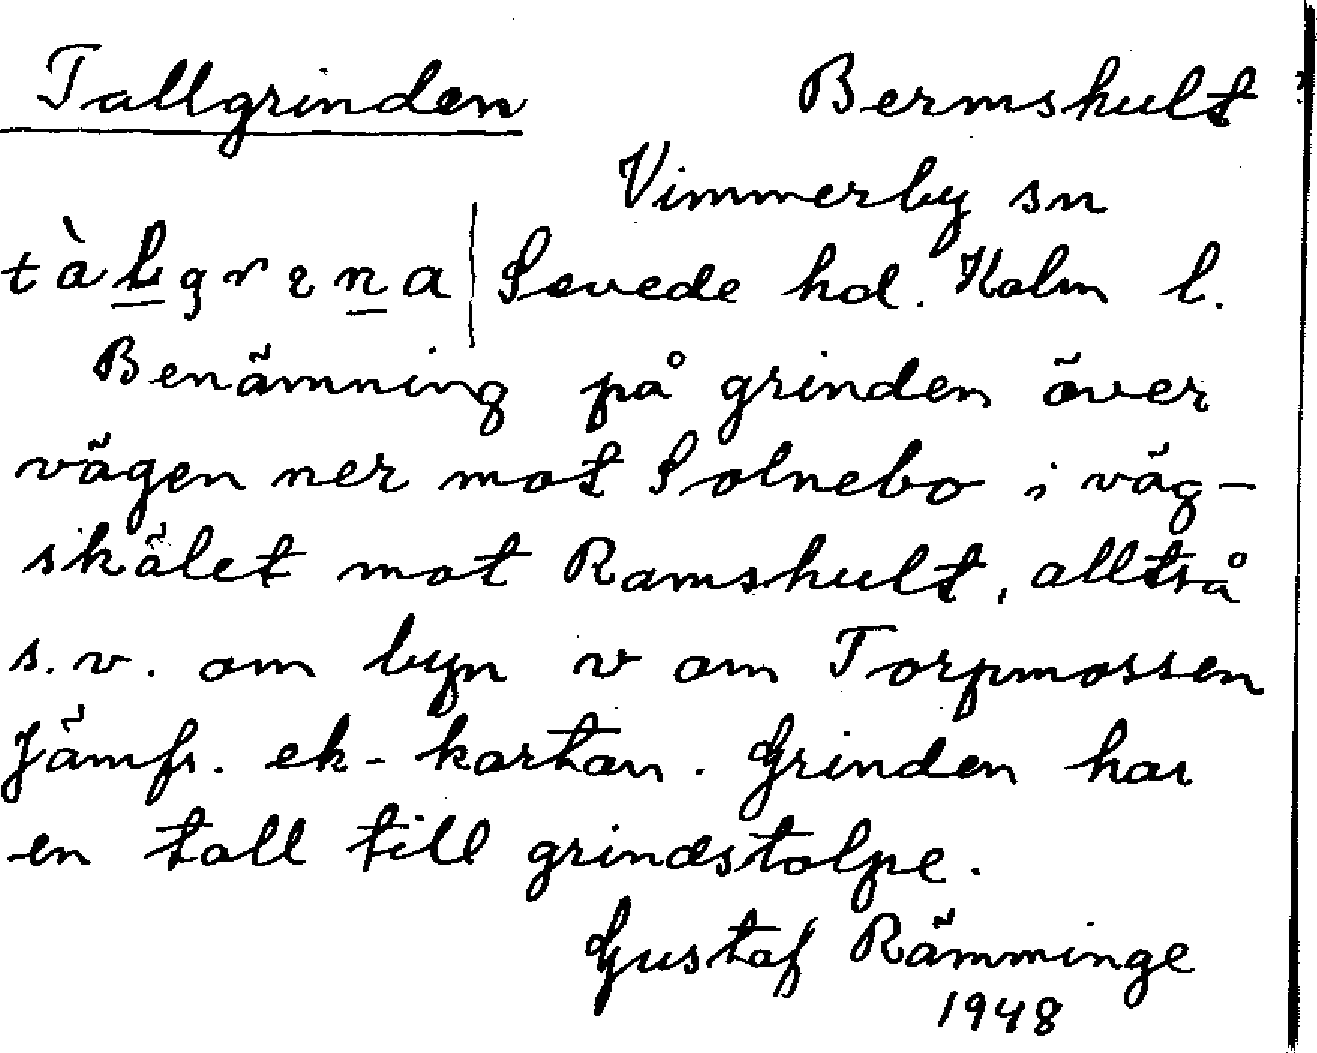 Tallgrinden Bermshult
Vimmerby sn
tàlgrena Sevede hd. Kalm l.
Benämning på grinden över
vägen ner mot Solnebo i väg-
skälet mot Ramshult, alltså
s.v. om byn v om Torpmossen
Jämfr. ek-kartan. Grinden har
en tall till grindstolpe.
Gustaf Rämminge
1948